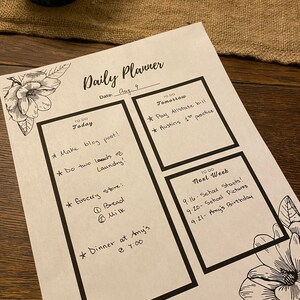 Daily Planner
Date: Aug 9
TO DO
Today
* Make blog post!
* Do two loads of
laundry!
* Grocery store:
① Bread
② Milk
* Dinner at Amy's
@ 7:00
TO DO
Tomorrow
* Pay Allstate bill
* Austin's 1st practice
TO DO
Next Week
9.16- School Starts!
9.20- School Pictures
9.21- Amy's Birthday